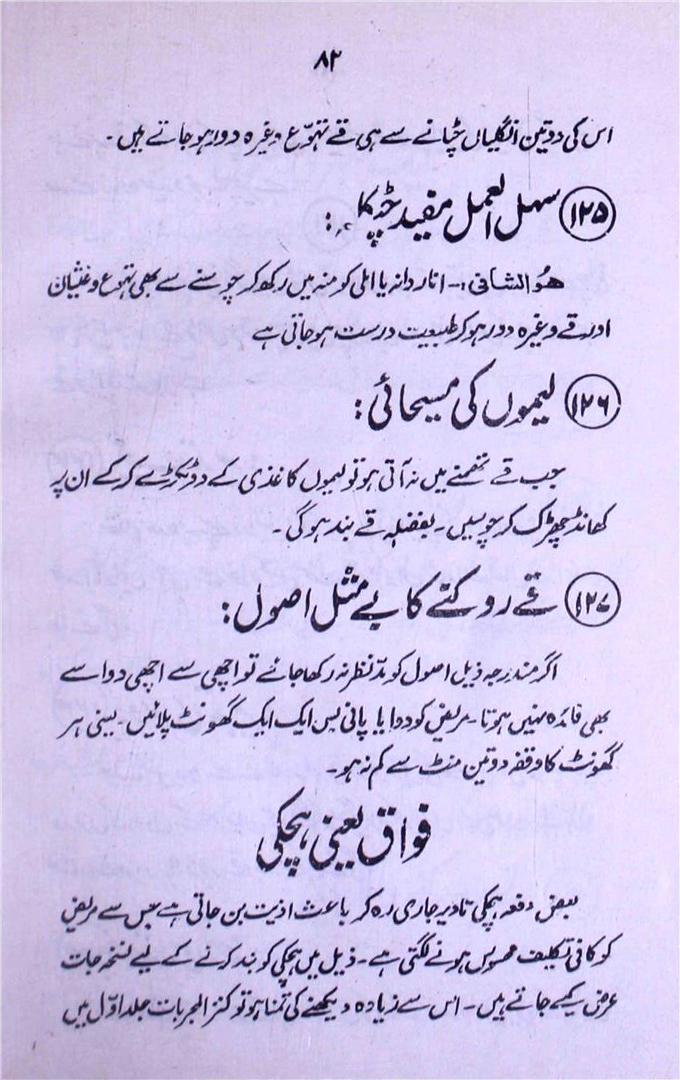 ۸۲
اس کی دو تین انگلیاں چٹانے سے ہی قے تہوّع وغیرہ دور ہو جاتے ہیں۔
۱۲۵ سہل العمل مفید چٹکلہ:
ھو الشافی:۔ انار دانہ یا املی کو منہ میں رکھ کر چوسنے سے بھی تہوع و غثیان
اور قے وغیرہ دور ہو کر طبیعت درست ہو جاتی ہے
۱۲۶ لیموں کی مسیحائی:
جب قے تھمنے میں نہ آتی ہو تو لیموں کاغذی کے دو ٹکڑے کر کے ان پر
کھانڈ چھڑک کر چوسیں۔ بفضلہ قے بند ہو گی۔
۱۲۷ قے روکنے کا بے مثل اصول:
اگر مندرجہ ذیل اصول کو مدّ نظر نہ رکھا جائے تو اچھی سے اچھی دوا سے
بھی فائدہ نہیں ہوتا۔ مریض کو دوا یا پانی بس ایک ایک گھونٹ پلائیں۔ یعنی ہر
گھونٹ کا وقفہ دو تین منٹ سے کم نہ ہو۔
فواق یعنی ہچکی
بعض دفعہ ہچکی تا دیر جاری رہ کر باعث اذیت بن جاتی ہے جس سے مریض
کو کافی تکلیف محسوس ہونے لگتی ہے۔ ذیل میں ہچکی کو بند کرنے کے لیے نسخہ جات
عرض کیے جاتے ہیں۔ اس سے زیادہ دیکھنے کی تمنا ہو تو کنز المجربات جلد اوّل میں